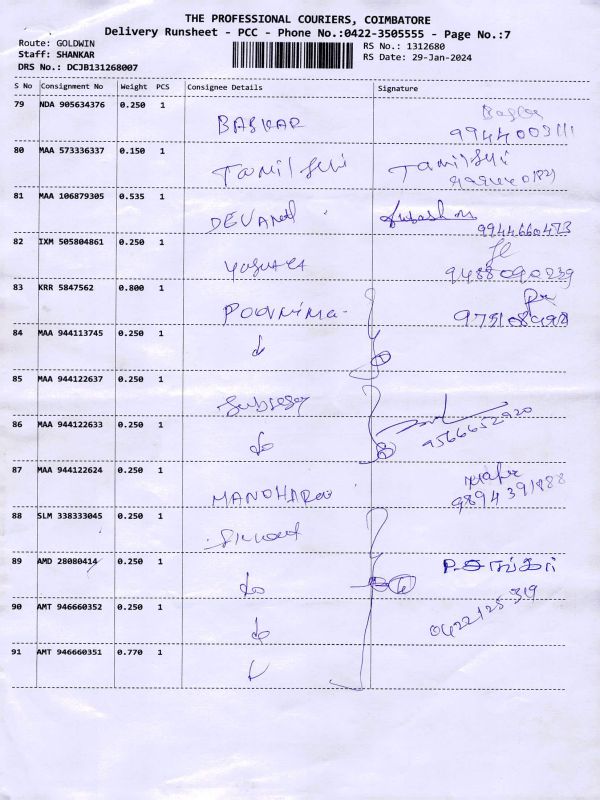 THE PROFESSIONAL COURIERS, COIMBATORE
Delivery Runsheet - PCC - Phone No.:0422-3505555 - Page No.:7
Route: GOLDWIN
Staff: SHANKAR
DRS No.: DCJB131268007
RS No.: 1312680
RS Date: 29-Jan-2024
S No Consignment No Weight PCS Consignee Details Signature
79 NDA 905634376 0.250 1
BASKAR
9944003111
80 MAA 573336337 0.150 1
Tamil Selvi Tamil Selvi
81 MAA 106879305 0.535 1
DEVAND
9944660473
82 IXM 505804861 0.250 1
9488090239
83 KRR 5847562 0.800 1
POORNIMA
84 MAA 944113745 0.250 1
do
85 MAA 944122637 0.250 1
86 MAA 944122633 0.250 1
do 8
9566652920
87 MAA 944122624 0.250 1
MANOHARAN
88 SLM 338333045 0.250 1
89 AMD 28080414 0.250 1
do
90 AMT 946660352 0.250 1
do
91 AMT 946660351 0.770 1